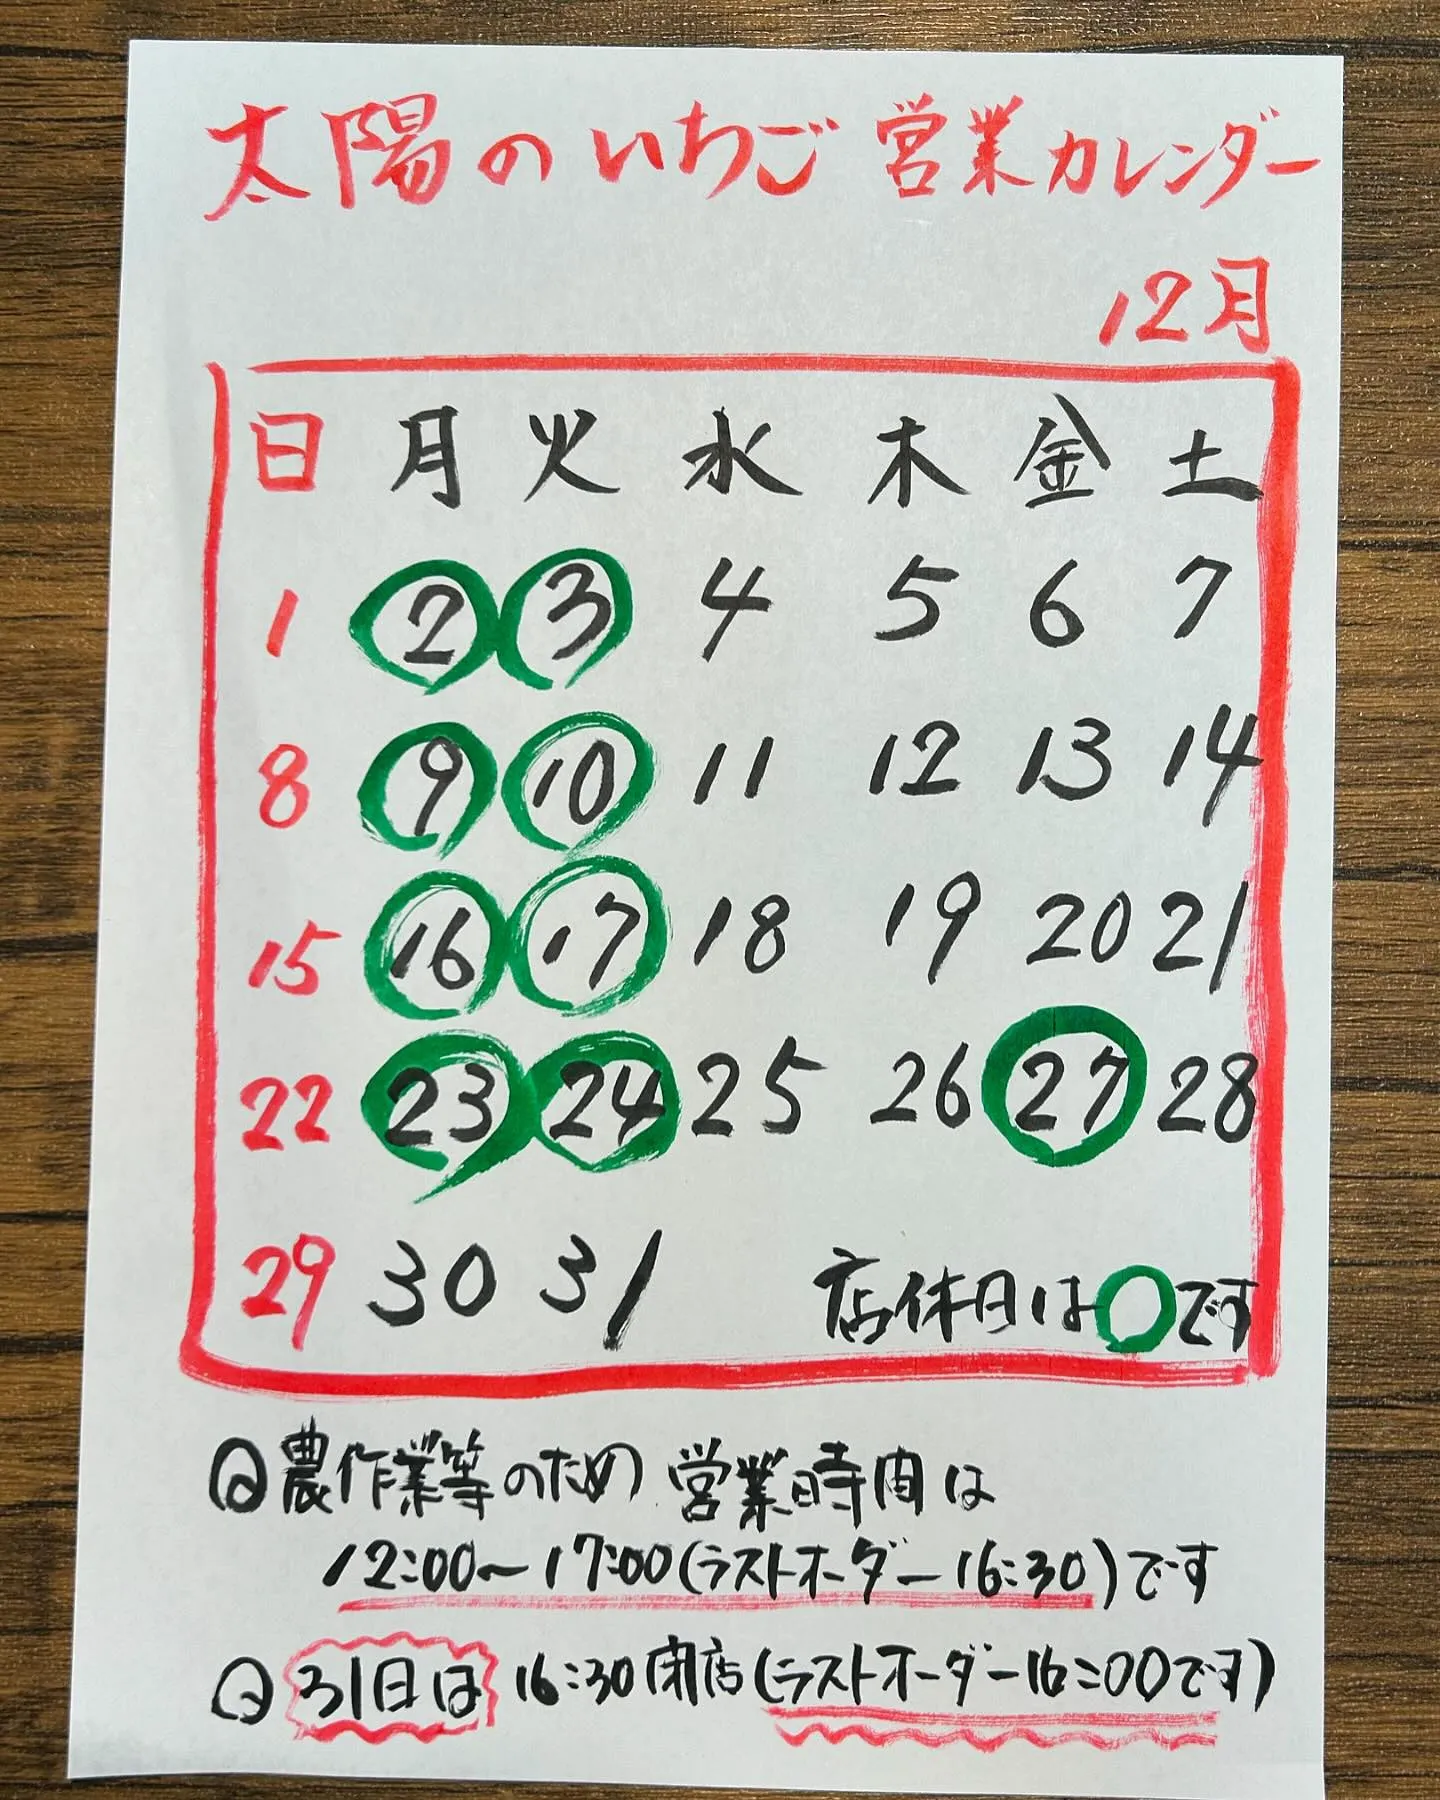 太陽のいちご 営業カレンダー
12月
日 月 火 水 木 金 土
1 2 3 4 5 6 7
8 9 10 11 12 13 14
15 16 17 18 19 20 21
22 23 24 25 26 27 28
29 30 31 店休日は○です
農作業等のため 営業時間は
12:00～17:00(ラストオーダー 16:30)です
31日は 16:30閉店(ラストオーダー16:00です)